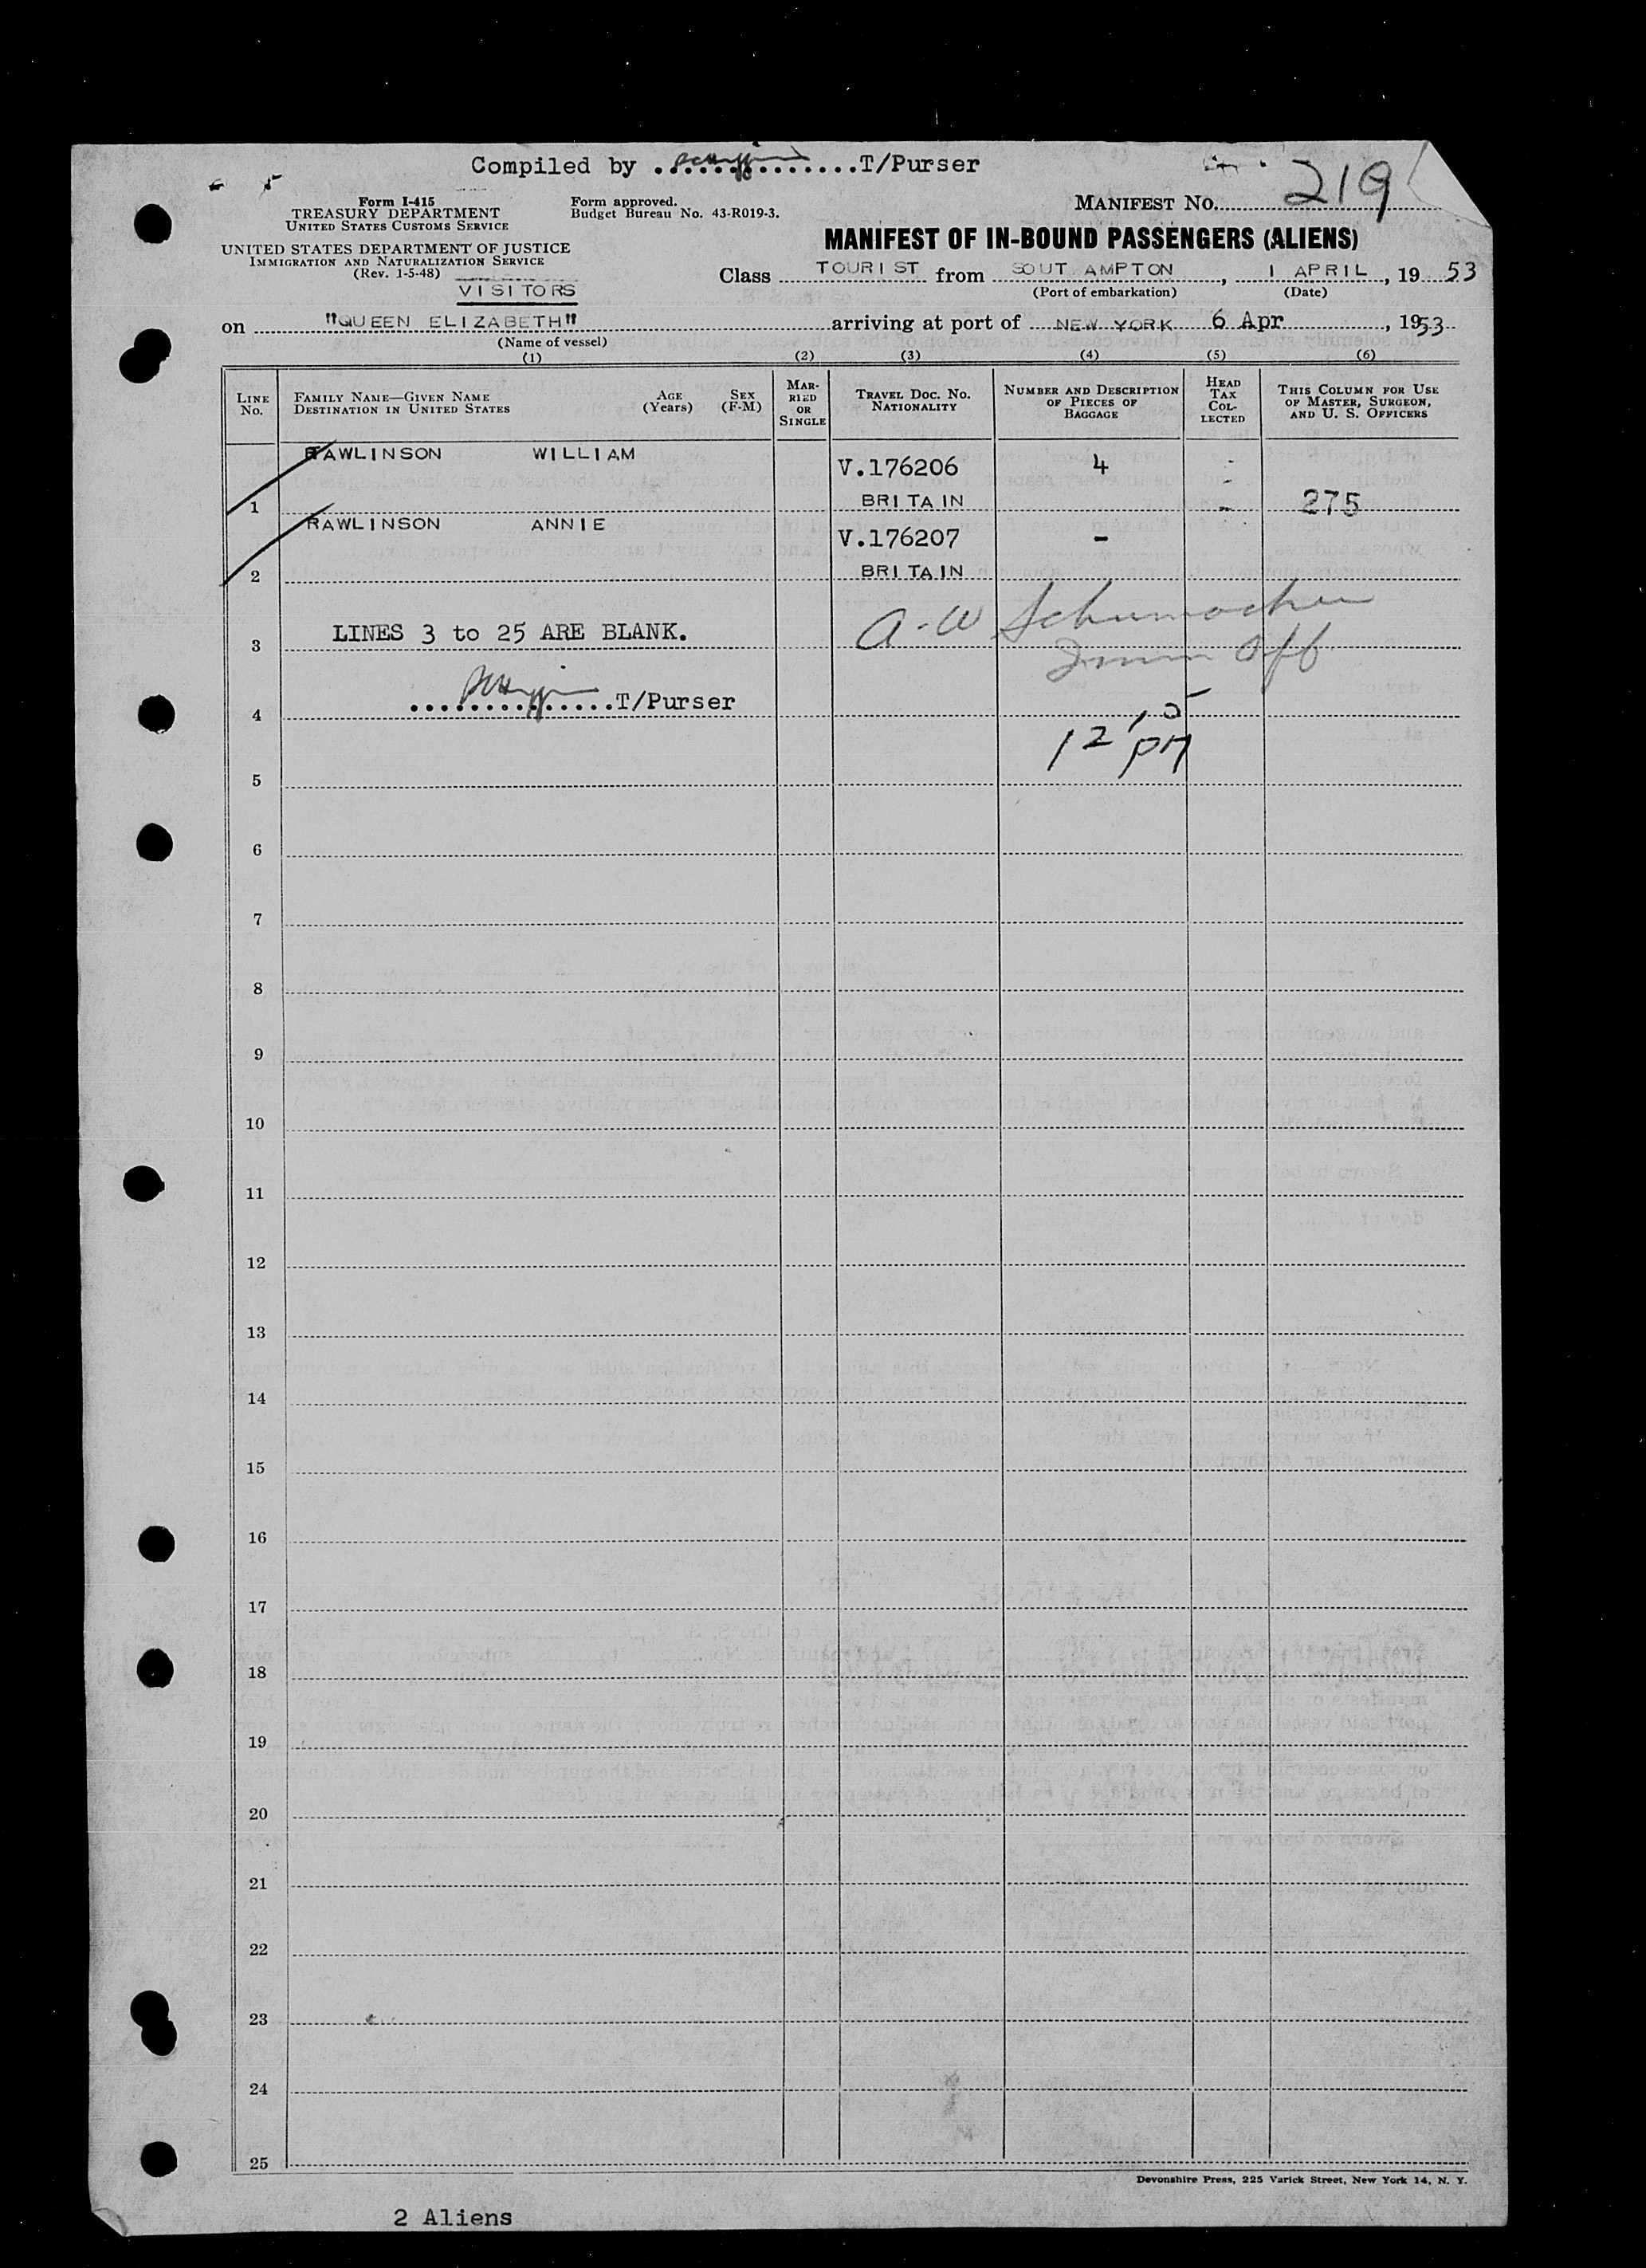 Compiled by ..............T/Purser
Form I-415
TREASURY DEPARTMENT
UNITED STATES CUSTOMS SERVICE
Form approved.
Budget Bureau No. 43-R019-3.
MANIFEST NO. 219
UNITED STATES DEPARTMENT OF JUSTICE
IMMIGRATION AND NATURALIZATION SERVICE
(Rev. 1-5-48)
VISITORS
MANIFEST OF IN-BOUND PASSENGERS (ALIENS)
Class TOURIST from SOUT AMPTON, 1 APRIL, 19 53
(Port of embarkation) (Date)
on "QUEEN ELIZABETH" arriving at port of NEW YORK 6 Apr, 1953
(Name of vessel)
(1) (2) (3) (4) (5) (6)
LINE No.
FAMILY NAME—GIVEN NAME
DESTINATION IN UNITED STATES
AGE (Years)
SEX (F-M)
MARRIED OR SINGLE
TRAVEL DOC. NO.
NATIONALITY
NUMBER AND DESCRIPTION OF PIECES OF BAGGAGE
HEAD TAX COLLECTED
THIS COLUMN FOR USE OF MASTER, SURGEON, AND U. S. OFFICERS
RAWLINSON WILLIAM V.176206 4 -
1 BRITAIN - 275
RAWLINSON ANNIE V.176207 -
2 BRITAIN
A-W Schumacher
3 LINES 3 to 25 ARE BLANK.
Imm Off
4 ..............T/Purser
12 15 PM
5
6
7
8
9
10
11
12
13
14
15
16
17
18
19
20
21
22
23
24
25
Devonshire Press, 225 Varick Street, New York 14, N. Y.
2 Aliens